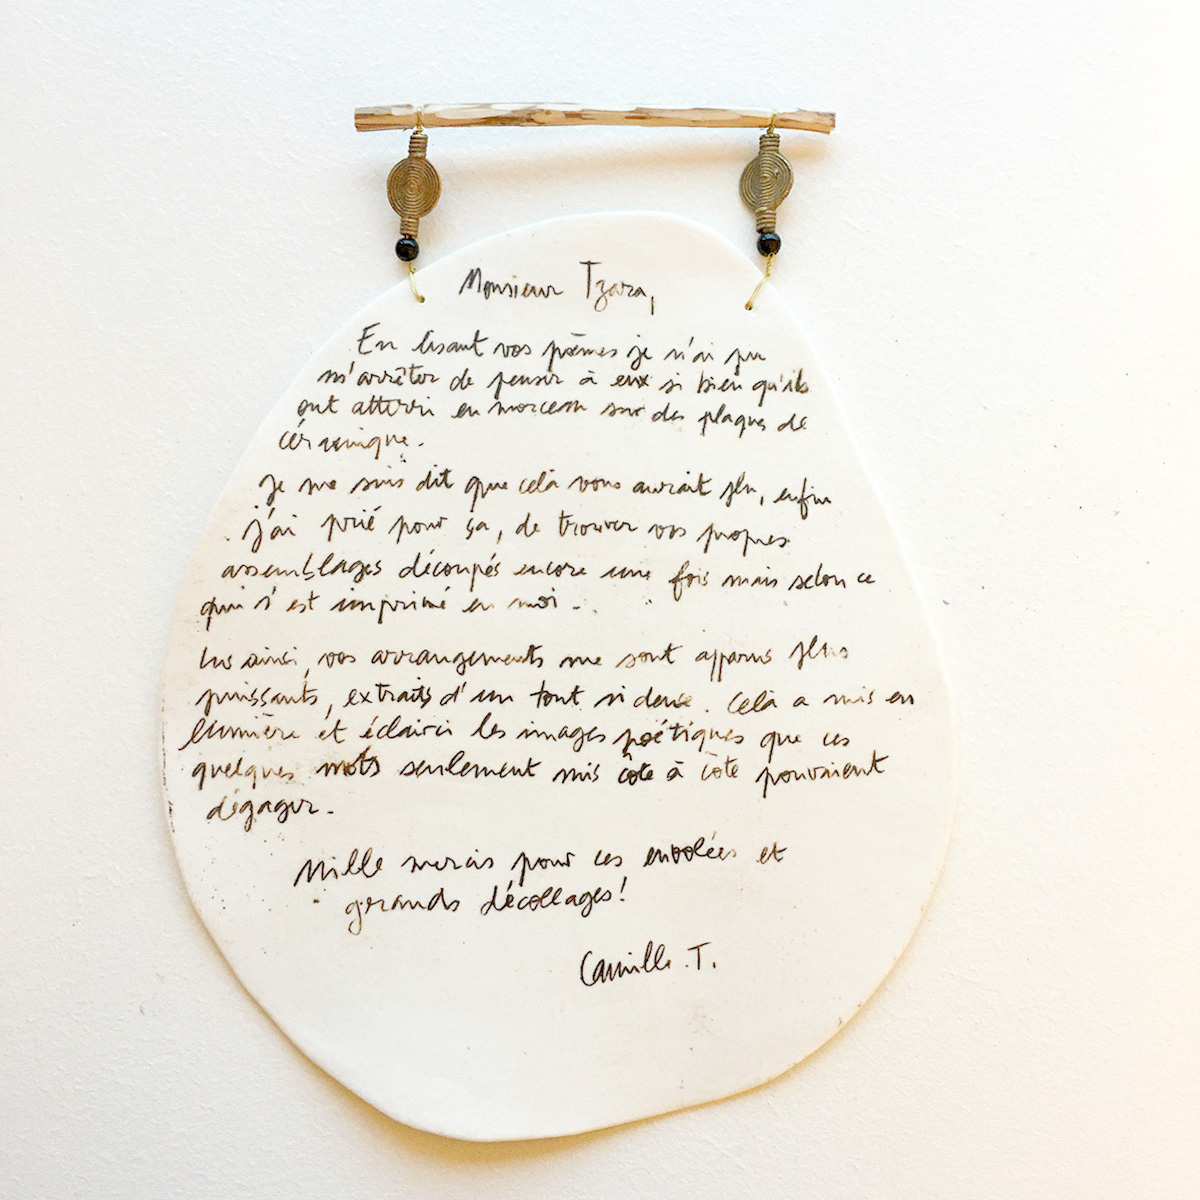 Monsieur Tzara,
En lisant vos poèmes je n'ai pu
m'arrêter de penser à eux si bien qu'ils
ont atterri en morceau sur des plaques de
céramique.
Je me suis dit que celà vous aurait plu, enfin
j'ai prié pour ça, de trouver vos propres
assemblages découpés encore une fois mais selon ce
qui s'est imprimé en moi.
Lus ainsi, vos arrangements me sont apparus plus
puissants, extraits d'un tout si dense. Celà a mis en
lumière et éclairci les images poétiques que ces
quelques mots seulement mis côte à côte pouvaient
dégager.
Mille mercis pour ces envolées et
grands décollages!
Camille T.